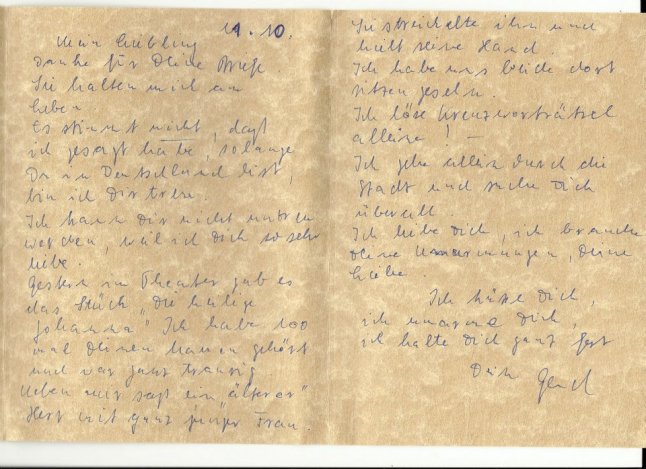 11.10.
Mein Liebling
Danke für Deine Briefe.
Sie halten mich am
Leben.
Es stimmt nicht, daß
ich gesagt habe, solange
Du in Deutschland bist,
bin ich Dir treu.
Ich kann Dir nicht untreu
werden, weil ich Dich so sehr
liebe.
Gestern im Theater gab es
das Stück „die heilige
Johanna" Ich habe 100
mal Deinen Namen gehört
und war ganz traurig.
Neben mir saß ein „älterer"
Herr mit ganz junger Frau.
Sie streichelte ihn und
hielt seine Hand.
Ich habe uns beide dort
sitzen gesehn.
Ich löse Kreuzworträtsel
alleine! –
Ich gehe allein durch die
Stadt und suche Dich
überall.
Ich liebe Dich, ich brauche
Deine Umarmungen, Deine
Liebe.
Ich küsse Dich,
ich umarme Dich,
ich halte Dich ganz fest
Dein